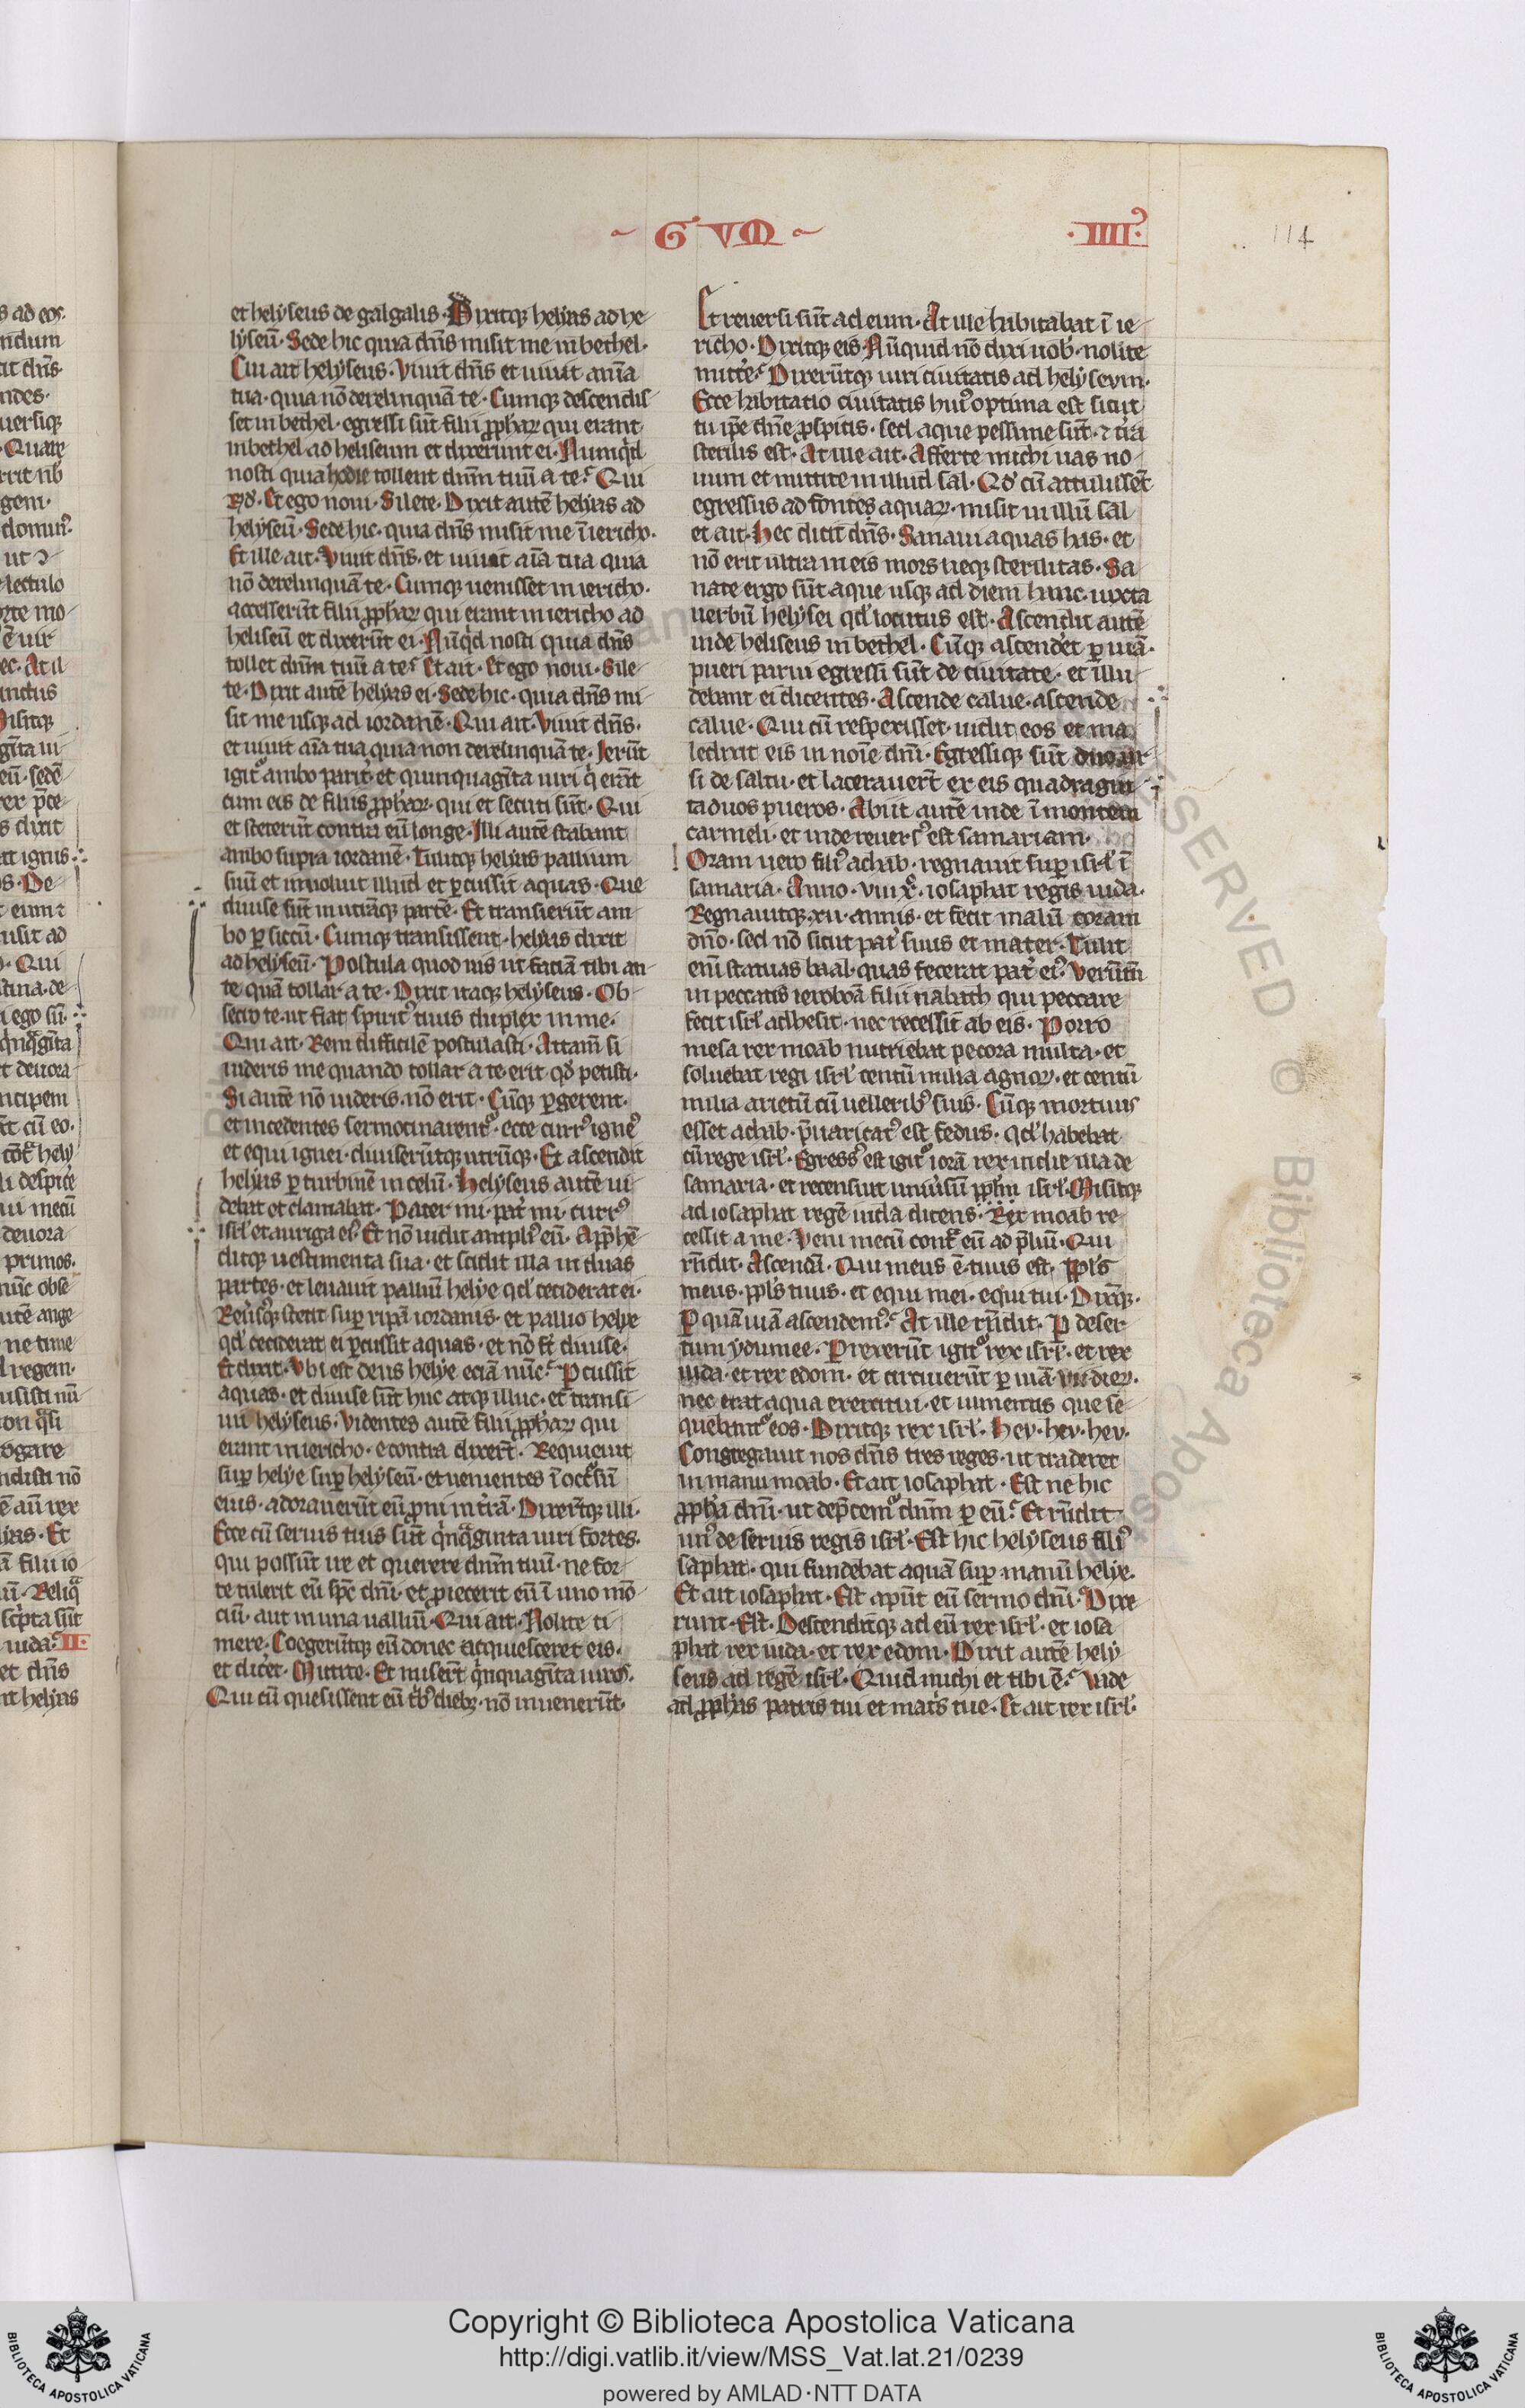 ~ G VM ~ · IIII ·
114
et helyseus de galgalis · Dixitq; helyas ad he
lyseū · Sede hic quia dn̄s misit me in bethel ·
Cui ait helyseus · Viuit dn̄s et uiuit aīa
tua · quia nō derelinquā te · Cumq; descendis
set in bethel · egressi sūt filii ꝓphaꝝ qui erant
in bethel ad heliseum et dixerunt ei · Numqͥd
nosti quia hodie tollet dn̄m tuū a te? Qui
rn̄d' · Et ego noui · Silete · Dixit autē helyas ad
helyseū · Sede hic · quia dn̄s misit me ī iericho ·
Et ille ait · Viuit dn̄s · et uiuit aīa tua quia
nō derelinquā te · Cumq; uenisset in iericho ·
accesserūt filii ꝓphaꝝ qui erant in iericho ad
heliseū et dixerūt ei · Nūqͥd nosti quia dn̄s
tollet dn̄m tuū a te? Et ait · Et ego noui · Sile
te · Dixit autē helyas ei · Sede hic · quia dn̄s mi
sit me usq; ad iordanē · Qui ait · Viuit dn̄s ·
et uiuit aīa tua quia non derelinquā te · Ierūt
igitͬ ambo parit̓ · et quinquagīta uiri qͥ erāt
cum eis de filiis ꝓphaꝝ · qui et secuti sūt · Qui
et steterūt contra eū longe · Illi autē stabant
ambo supra iordanē · Tulitq; helyas pallium
suū et inuoluit illud et ꝑcussit aquas · Que
diuise sūt in utrāq; partē · Et transierūt am
bo ꝑ siccū · Cumq; transissent · helyas dixit
ad helyseū · Postula quod uis ut faciā tibi an
te quā tollar a te · Dixit itaq; helyseus · Ob
secro te · ut fiat spirit᾽ tuus duplex in me ·
Qui ait · Rem difficilē postulasti · Attam̄ si
uideris me quando tollar a te erit qd̓ petisti ·
Si autē nō uideris · nō erit · Cūq; ꝑgerent ·
et incedentes sermocinarentͬ · ecce curr᾽ igne᾽
et equi ignei · diuiserūtq; utrūq; · Et ascendit
helyas ꝑ turbinē in celū · Helyseus autē ui
debat et clamabat · Pater mi · pat̓ mi · curr᾽
isrl̓ et auriga ei᾽ · Et nō uidit ampli᾽ eū · Apꝓhē
ditq; uestimenta sua · et scidit illa in duas
partes · et leuauit palliū helye qd̓ ceciderat ei ·
Reu̓sq; stetit suꝑ ripā iordanis · et pallio helye
qd̓ ceciderat ei ꝑcussit aquas · et nō st̄ diuise ·
Et dixit · Vbi est deus helye eciā nūc? Ꝑcussit
aquas · et diuise sūt huc atq; illuc · et transi
iit helyseus · Videntes autē filii ꝓphaꝝ qui
erant in iericho · econtra dixer̄t · Requieuit
suꝑ helye suꝑ helyseū · et uenientes ī occͬsū
eius · adorauerūt eū ꝓni in t̓rā · Dixer̄tq; illi ·
Ecce cū seruis tuis sūt qͥnqͣginta uiri fortes ·
qui possūt ire et querere dn̄m tuū · ne for
te tulerit eū spc̄ dn̄i · et ꝓiecerit eū ī uno mō
ciū · aut in una ualliū · Qui ait · Nolite ti
mere · Coegerūtq; eū donec acquiesceret eis ·
et dic̓et · Mittite · Et miser̄t qͥnquagīta uiros ·
Qui cū quesissent eū tͥb᾽ dieb; · nō inuenerūt ·
Et reuersi sūt ad eum · At ille habitabat ī ie
richo · Dixitq; eis · Nūquid nō dixi uob̓ · nolite
mitt̓e? Dixerūtq; uiri ciuitatis ad helyseum ·
Ecce habitatio ciuitatis hui᾽ optima est sicut
tu ip̄e dn̄e ꝓspicis · sed aque pessime sūt · ⁊ t̓ra
sterilis est · At ille ait · Afferte michi uas no
uum et mittite in illud sal · Qd̓ cū attulissēt
egressus ad fontes aquaꝝ · misit in illū sal
et ait · Hec dicit dn̄s · Sanaui aquas has · et
nō erit ultra in eis mors neq; sterilitas · Sa
nate ergo sūt aque usq; ad diem hunc · iuxta
uerbū helysei qd̓ locutus est · Ascendit autē
inde heliseus in bethel · Cūq; ascendet ꝑ uiā ·
pueri parui egressi sūt de ciuitate · et illu
debant ei dicentes · Ascende calue · ascende
calue · Qui cū resꝑexisset · uidit eos et ma
ledixit eis in noīe dn̄i · Egressiq; sūt duo ur
si de saltu · et lacerauer̄t ex eis quadragin
ta duos pueros · Abiit autē inde ī montem
carmeli · et inde reuers᾽ est samariam ·
Oram uero fili᾽ achab · regnauit suꝑ isrl̓ ī
samaria · Anno · xviiiͦ · iosaphat regis iuda ·
Regnauitq; xii · annis · et fecit malū coram
dn̄o · sed nō sicut pat̓ suus et mater · Tulit
enī statuas baal · quas fecerat pat̓ ei᾽ · Verūtn̄
in peccatis ieroboā filii nabath qui peccare
fecit isrl̓ adhesit · nec recessit ab eis · Porro
mesa rex moab nutriebat pecora multa · et
soluebat regi isrl̓ centū milia agnoꝝ · et centū
milia arietū cū uellerib᾽ suis · Cūq; mortuus
esset achab · p̄uaricat᾽ est fedus · qd̓ habebat
cū rege isrl̓ · Egress᾽ est igitͬ iorā rex in die illa de
samaria · et recensuit uniu̓sū pplm̄ isrl̓ · Misitq;
ad iosaphat regē iuda dicens · Rex moab re
cessit a me · Veni mecū contͣ eū ad p̄liū · Qui
rn̄dit · Ascendā · Qui meus ē · tuus est · ppl̓s
meus · ppl̓s tuus · et equi mei · equi tui · Dixq; ·
Ꝑ quā uiā ascendem᾽? At ille rn̄dit · Ꝑ deser
tum ydumee · Ꝑrexerūt igitͬ rex isrl̓ · et rex
iuda · et rex edom · et circuierūt ꝑ uiā · vii dieꝝ ·
nec erat aqua exercitui · et iumentis que se
quebantͬ eos · Dixitq; rex isrl̓ · Hev · hev · hev ·
Congregauit nos dn̄s tres reges · ut traderet
in manu moab · Et ait iosaphat · Est ne hic
ꝓpha dn̄i · ut dep̄cemͬ dn̄m ꝑ eū? Et rn̄dit
un᾽ de seruis regis isrl̓ · Est hic helyseus fili᾽
saphat · qui fundebat aquā suꝑ manū helye ·
Et ait iosaphat · Est apūt eū sermo dn̄i · Dixe
runt · Est · Descenditq; ad eū rex isrl̓ · et iosa
phat rex iuda · et rex edom · Dixit autē hely
seus ad regē isrl̓ · Quid michi et tibi ē? Vade
ad ꝓphas patris tui et mat̓s tue · Et ait rex isrl̓ ·
Copyright © Biblioteca Apostolica Vaticana
http://digi.vatlib.it/view/MSS_Vat.lat.21/0239
powered by AMLAD·NTT DATA
BIBLIOTECA APOSTOLICA VATICANA
BIBLIOTECA APOSTOLICA VATICANA